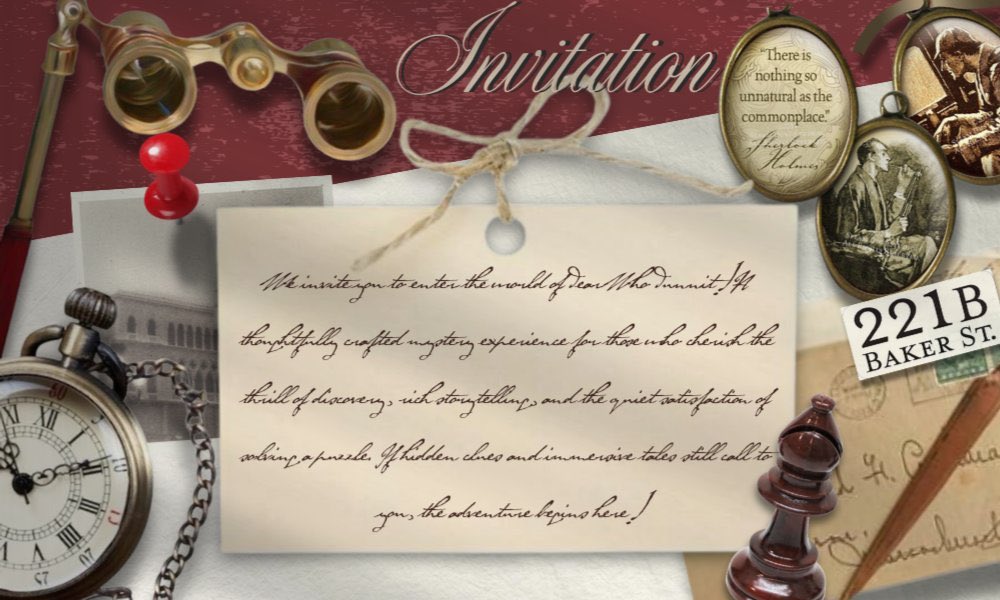 Invitation
"There is
nothing so
unnatural as the
commonplace."
Sherlock
Holmes
221B
BAKER ST.
We invite you to enter the world of Dear Who Dunnit! A
thoughtfully crafted mystery experience for those who cherish the
thrill of discovery, rich storytelling, and the quiet satisfaction of
solving a puzzle. If hidden clues and immersive tales still call to
you, the adventure begins here!